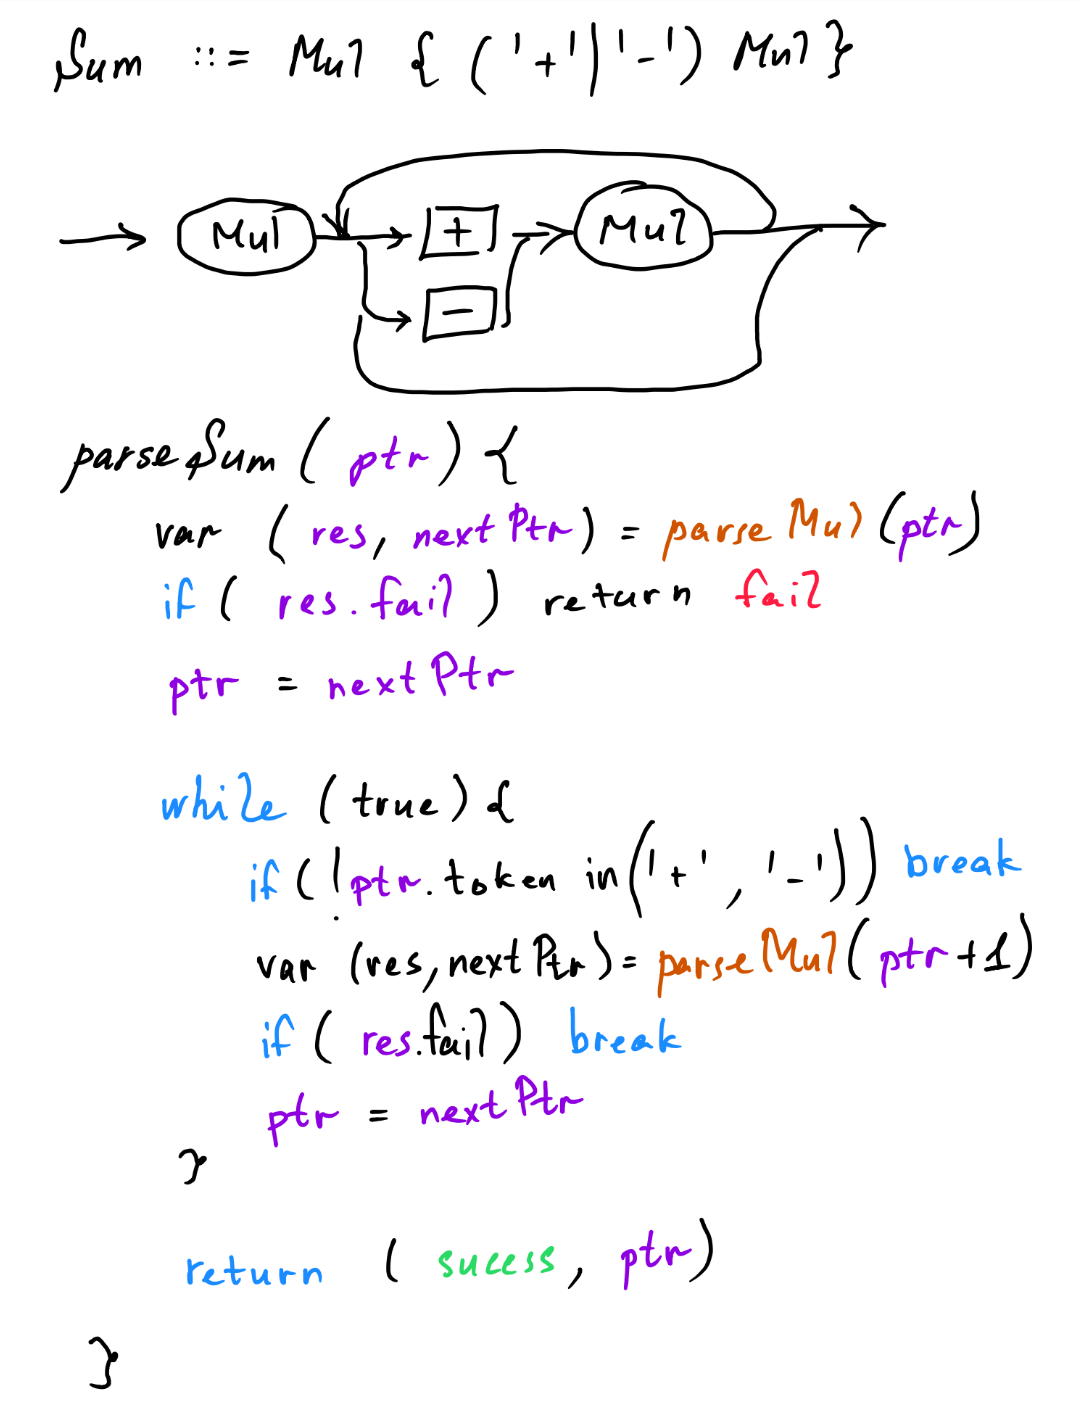 Sum ::= Mul { ('+'|'-') Mul }
Mul + Mul
-
parseSum ( ptr ) {
var ( res, nextPtr ) = parseMul (ptr)
if ( res.fail ) return fail
ptr = nextPtr
while ( true ) {
if ( !ptr.token in ('+', '-')) break
var (res, nextPtr) = parseMul ( ptr+1)
if ( res.fail ) break
ptr = nextPtr
}
return ( sucess, ptr)
}